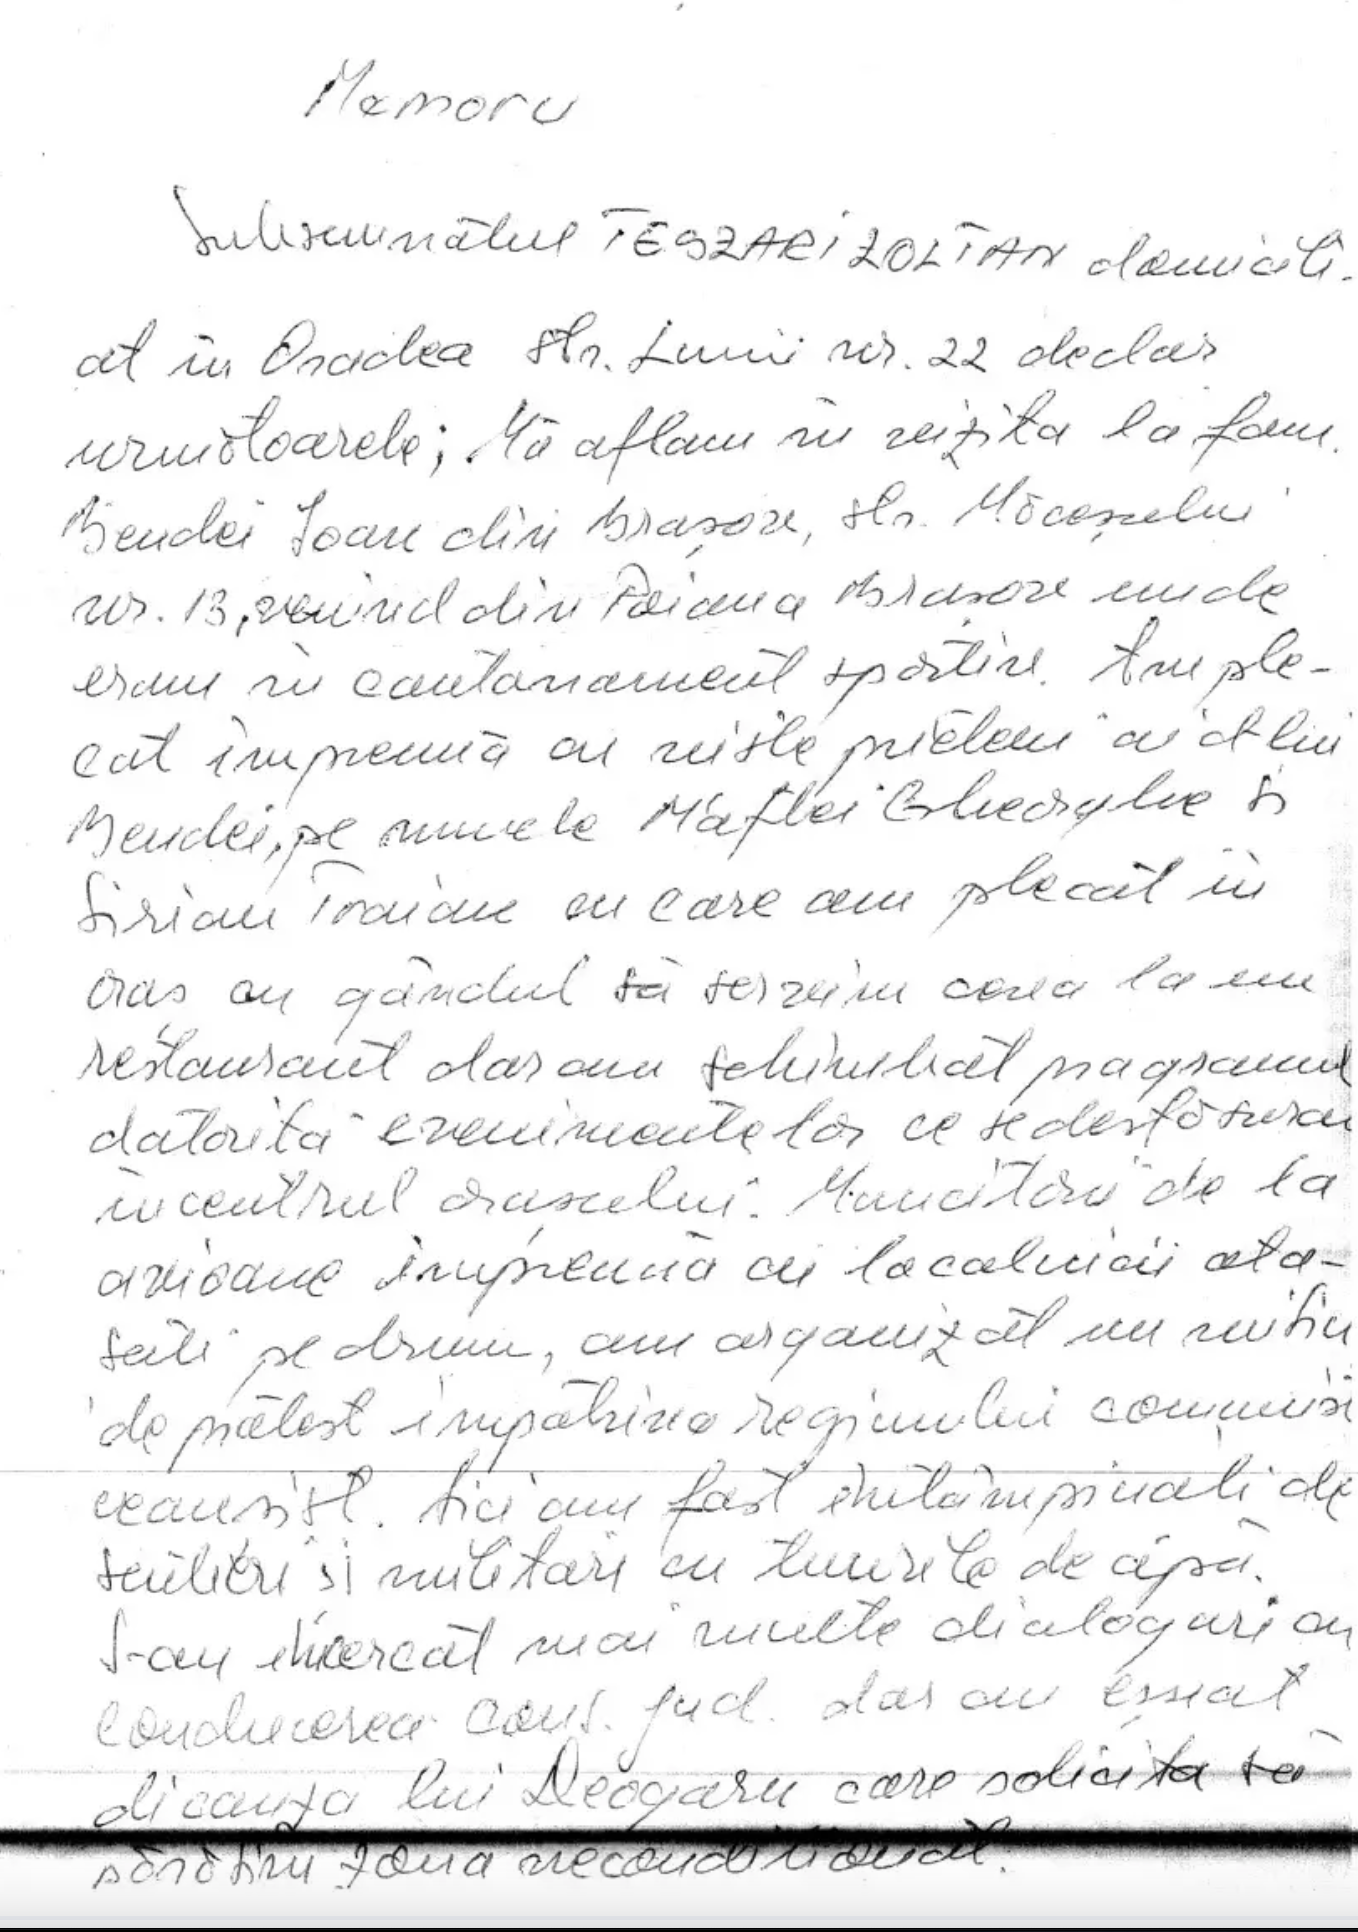 Memoru
Subsemnatul TESZARI ZOLTAN domicili-
at în Oradea str. Lunii nr. 22 declar
urmatoarele; Mă aflam în vizita la fam.
Bendei Ioan din Brașov, str. Măceșului
nr. 13, venind din Poiana Brasov unde
eram in cantonament sportiv. Am ple-
cat împreună cu niste prieteni ai d-lui
Bendei, pe numele Maftei Gheorghe si
Sirian Traian cu care am plecat in
oras cu gândul să servim ceva la un
restaurant dar am schimbat programul
datorita evenimentelor ce se desfăsurau
in centrul orasului. Muncitorii de la
avioane împreună cu localnicii ata-
sati pe drum, am organizat un mitin
de protest impotriva regimului comunist
ceausist. Aici am fost intâmpinati de
scutieri si militari cu tunurile de apă.
S-au incercat mai multe dialoguri cu
conducerea cons. jud. dar au esuat
dicauza lui Deogaru care solicita să
părăsim zona necondiționat.